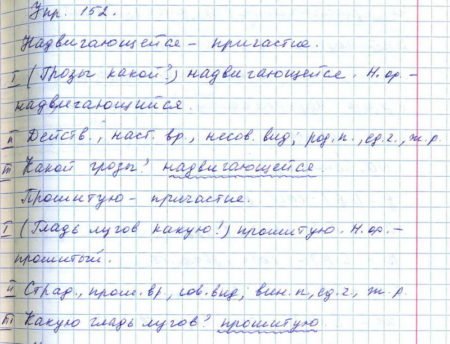 Упр. 152.
Надвигающейся – причастие.
I (Грозы какой?) надвигающейся. Н.ф. –
надвигающийся.
II Действ., наст. вр., несов. вид; род. п., ед. ч., ж. р.
III Какой грозы? надвигающейся.
Прошитую – причастие.
I (Гладь лугов какую?) прошитую. Н.ф. –
прошитый.
II Страд., прош. вр., сов. вид; вин. п., ед. ч., ж. р.
III Какую гладь лугов? прошитую.